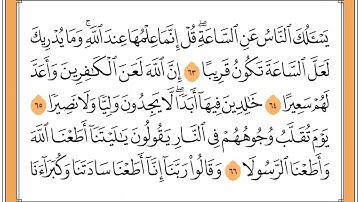 يَسْـَٔلُكَ ٱلنَّاسُ عَنِ ٱلسَّاعَةِۖ قُلْ إِنَّمَا عِلْمُهَا عِندَ ٱللَّهِۚ وَمَا يُدْرِيكَ
لَعَلَّ ٱلسَّاعَةَ تَكُونُ قَرِيبًا ٦٣ إِنَّ ٱللَّهَ لَعَنَ ٱلْكَـٰفِرِينَ وَأَعَدَّ
لَهُمْ سَعِيرًا ٦٤ خَـٰلِدِينَ فِيهَآ أَبَدًاۖ لَّا يَجِدُونَ وَلِيًّا وَلَا نَصِيرًا ٦٥
يَوْمَ تُقَلَّبُ وُجُوهُهُمْ فِى ٱلنَّارِ يَقُولُونَ يَـٰلَيْتَنَآ أَطَعْنَا ٱللَّهَ
وَأَطَعْنَا ٱلرَّسُولَا۠ ٦٦ وَقَالُوا۟ رَبَّنَآ إِنَّآ أَطَعْنَا سَادَتَنَا وَكُبَرَآءَنَا